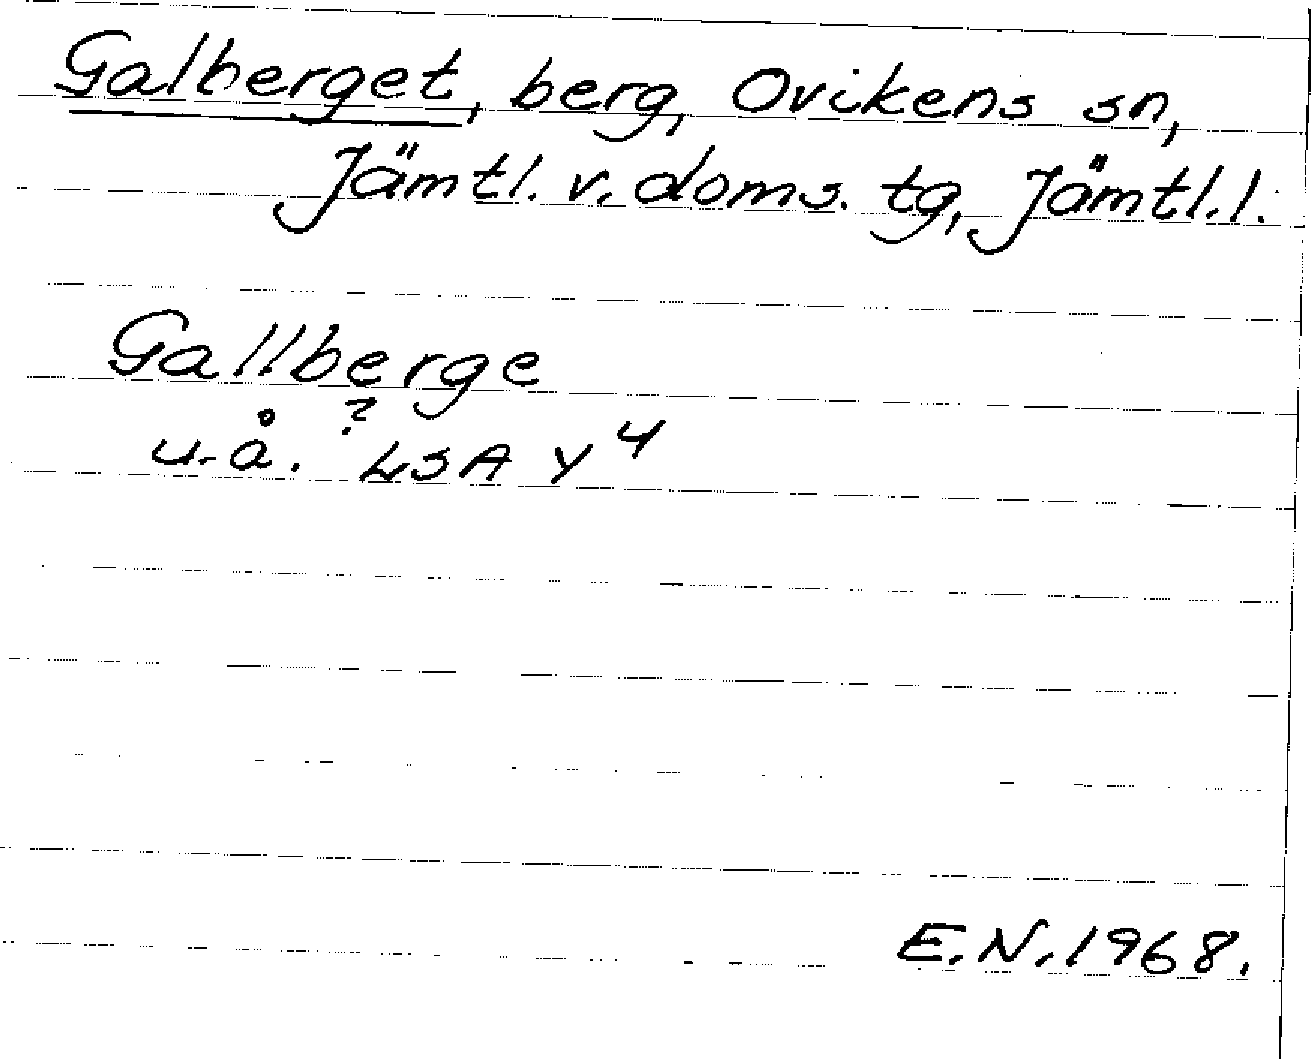 Galberget, berg, Ovikens sn,
Jämtl. v. doms. tg, Jämtl. l.
Gallberge
u. å. ? LSA Y 4
E. N. 1968.